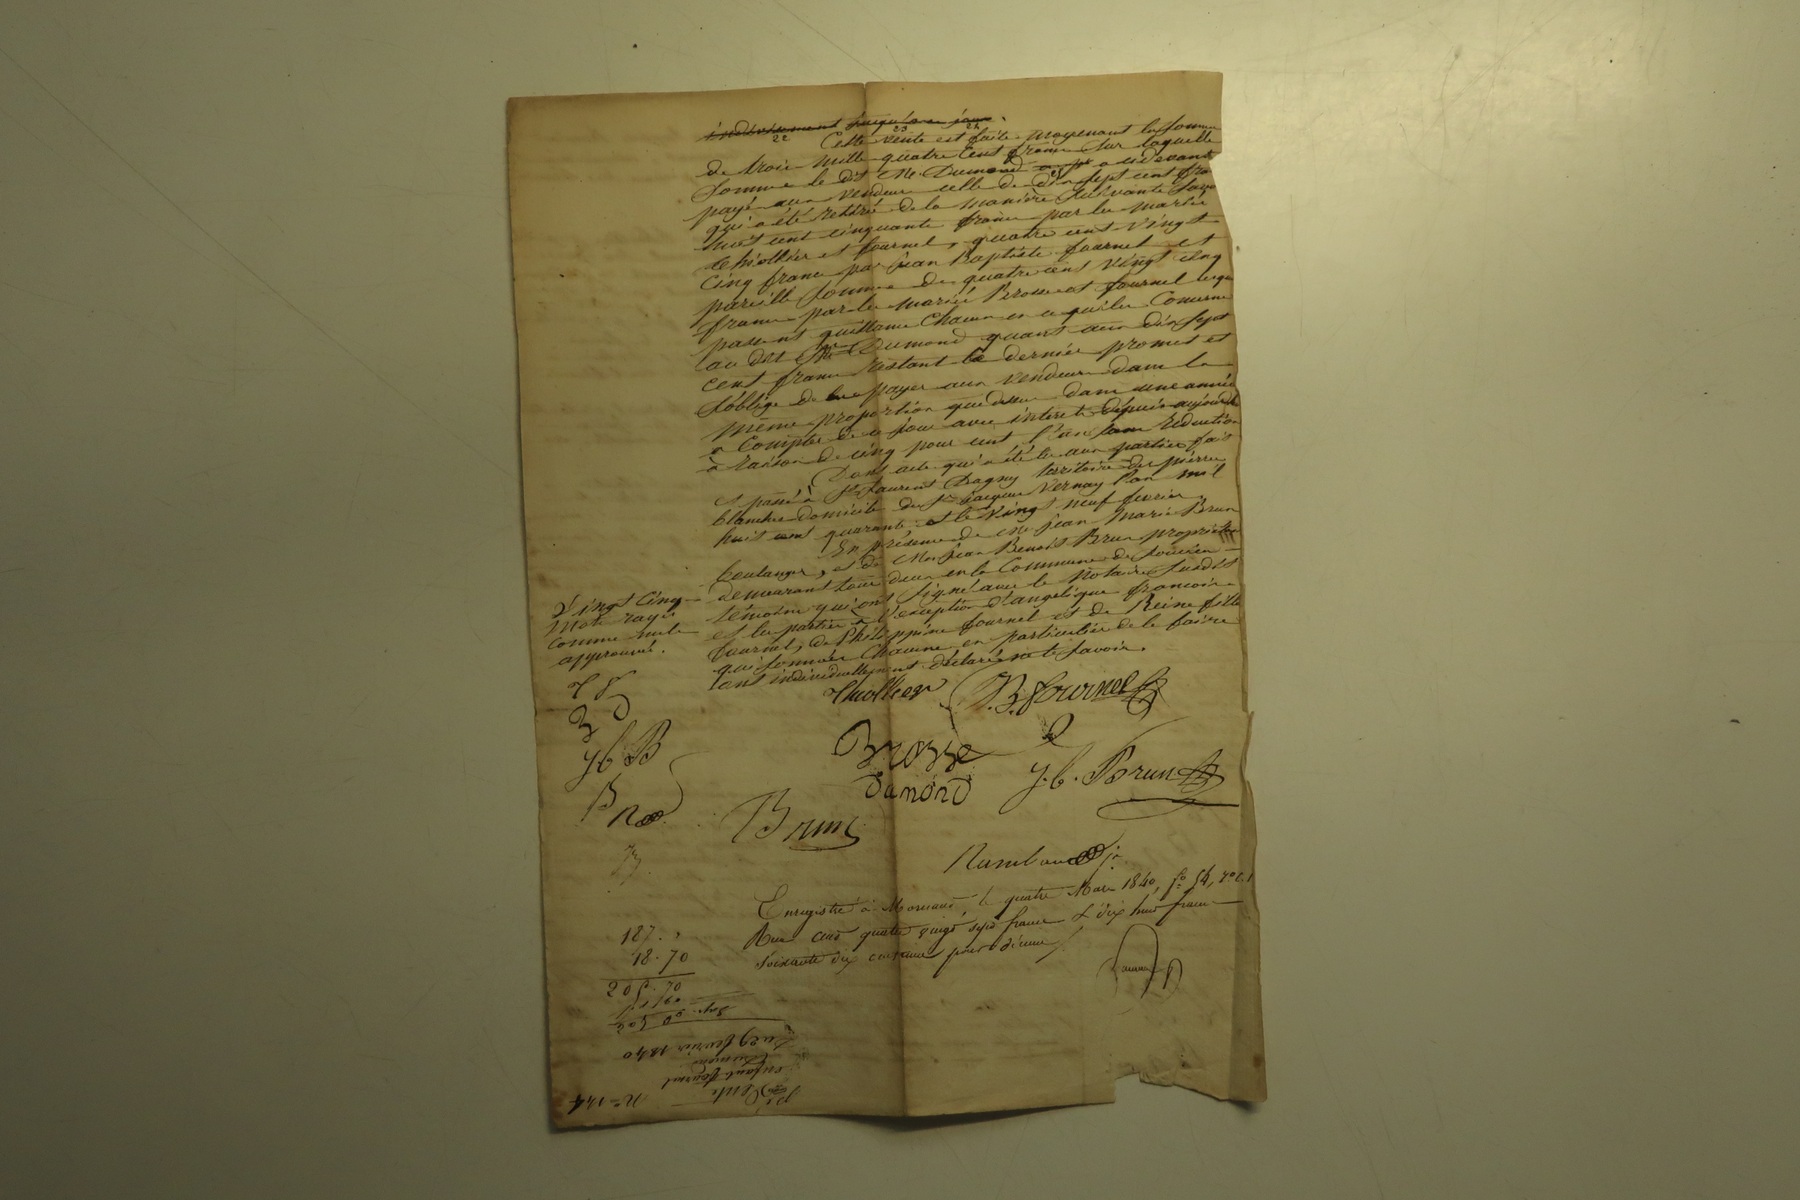 indivisement jusqu'à ce jour.
22 23 24
Cette vente est faite moyenant la somme
de trois mille quatre cent francs sur laquelle
somme le dit Me. Dumond a ci devant
payé aux vendeurs celle de dix sept cent fra
qui a été retiré de la manière suivante savo
huit cent cinquante francs par les mariés
thiollier et fournel, quatre cent vingt
cinq francs par jean Baptiste fournel et
pareille somme de quatre cent vingt cinq
francs par les mariés Brosse et fournel lesqu
passent quittance chacun en ce qui les concerne
au dit Me Dumond quant aux dix sept
cent francs restant ce dernier promet et
s'oblige de les payer aux vendeurs dans la
même proportion que dessus dans une année
à compter de ce jour avec interet depuis aujourd'h
à raison de cinq pour cent l'an sans reduction
Dont acte qui a été lu aux parties fait
et passé à St. Laurent Dagny territoire des pierres
blanches domicile de Sr. jacques Vernay l'an mil
huit cent quarante et le vingt neuf fevrier.
En présence de Mr jean Marie Brun
boulanger, et de Mr jean Benoit Brun propriétaire
demeurant tous deux en la Commune de Soucieu
témoins qui ont signé avec le Notaire susdit
et les parties à l'exception d'angelique francoise
fournel, de Philippine fournel et de Reine fille
qui sommées chacune en particulier de le faire
ont individuellement déclaré ne le savoir.
Vingt cinq
mots rayés
comme nuls
approuvé.
Thiollier
B. fournel
Brosse
J. b. Brun
Dumond
Brun
J b B
B
Rambaud jne
Enregistré à Mornant, le quatre Mars 1840, fo 54, Vo C. 1
Reçu cent quatre vingt sept francs & dix huit francs
soixante dix centimes pour décime
187. "
18. 70
205. 70
Du 29 fevrier 1840
Vente
enfants fournel
Dumond
No 144